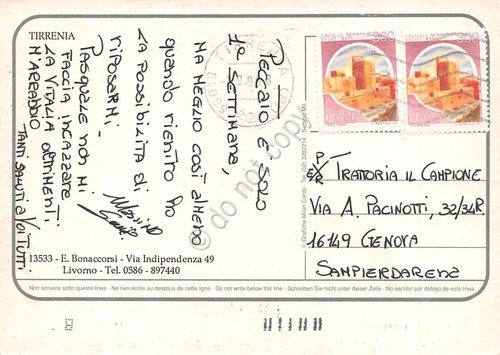 TIRRENIA
PECCATO È SOLO
1ª SETTIMANA,
MA MEGLIO COSÌ ALMENO
QUANDO RIENTRO HO
LA POSSIBILITÀ DI
RIPOSARMI.
PASQUALE NON MI
FACCIA INCAZZARE
LA VITALIA ALTRIMENTI
M'ARRABBIO
TANTI SALUTI A VOI TUTTI.
MASSIMO
13533 - E. Bonaccorsi - Via Indipendenza 49
Livorno - Tel. 0586 - 897440
© Grafiche Milan Cards - Tel. (02) 3082214 - Settimo MI
CASTELLO NORMANNO
ITALIA
CASTELLO NORMANNO
ITALIA
TIRRENIA
P/R TRATTORIA IL CAMPIONE
VIA A. PACINOTTI, 32/34R.
16149 GENOVA
SAMPIERDARENA
Non scrivere sotto questa linea - Ne rien écrire au dessous de cette ligne - Do not write below this line - Schreiben Sie nicht unter dieser Zeile - No escribir por debajo de esta línea.
© do not copy